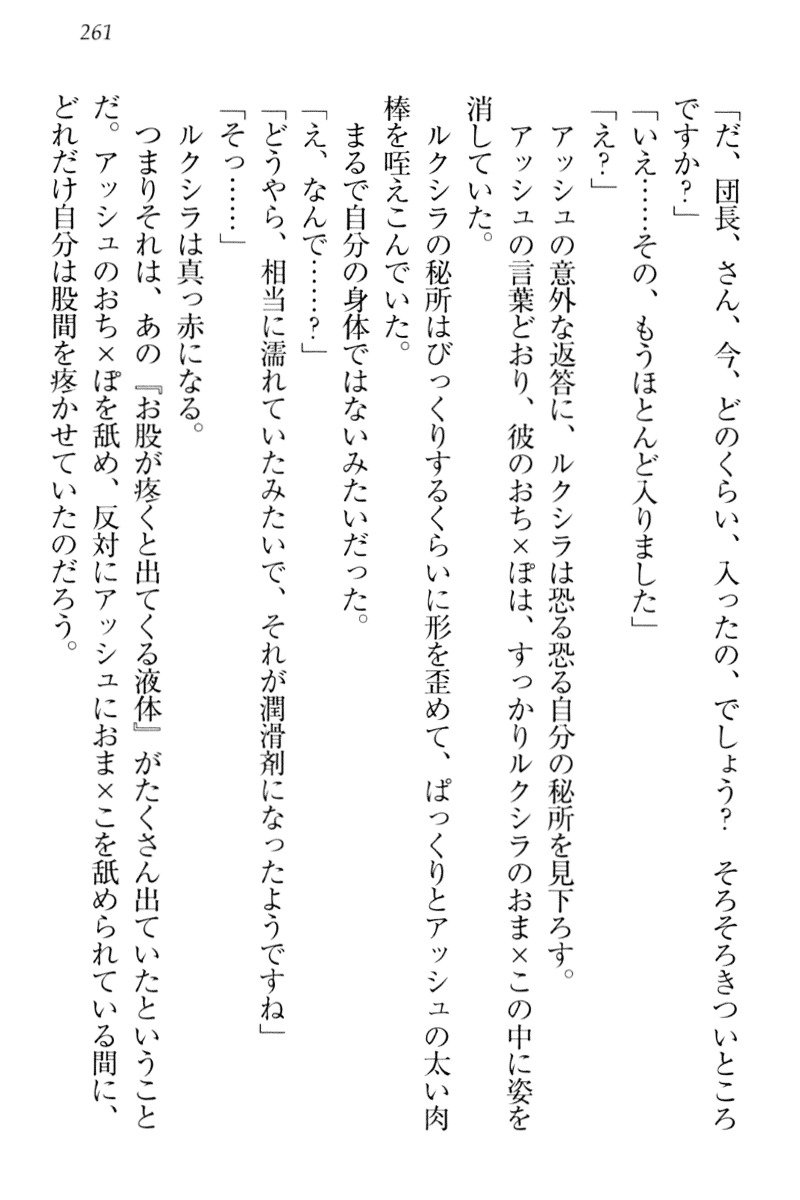 261
「だ、団長、さん、今、どのくらい、入ったの、でしょう？　そろそろきついところ
ですか？」
「いえ……その、もうほとんど入りました」
「え？」
　アッシュの意外な返答に、ルクシラは恐る恐る自分の秘所を見下ろす。
　アッシュの言葉どおり、彼のおち×ぽは、すっかりルクシラのおま×この中に姿を
消していた。
　ルクシラの秘所はびっくりするくらいに形を歪めて、ぱっくりとアッシュの太い肉
棒を咥えこんでいた。
　まるで自分の身体ではないみたいだった。
「え、なんで……？」
「どうやら、相当に濡れていたみたいで、それが潤滑剤になったようですね」
「そっ……」
　ルクシラは真っ赤になる。
　つまりそれは、あの『お股が疼くと出てくる液体』がたくさん出ていたということ
だ。アッシュのおち×ぽを舐め、反対にアッシュにおま×こを舐められている間に、
どれだけ自分は股間を疼かせていたのだろう。